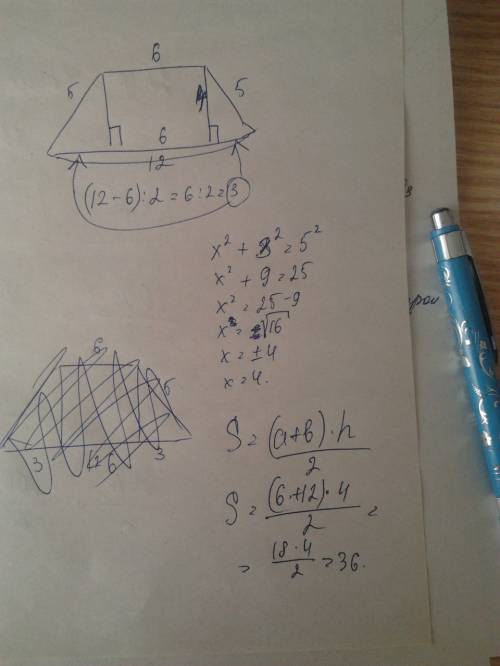 6
5 4 5
6
12
(12-6):2=6:2=3
x²+3²=5²
x²+9=25
x²=25-9
x=±√16
x=±4
x=4.
6
5
3 12 6 3
S=(a+b)·h/2
S=(6+12)·4/2=
=18·4/2=36.